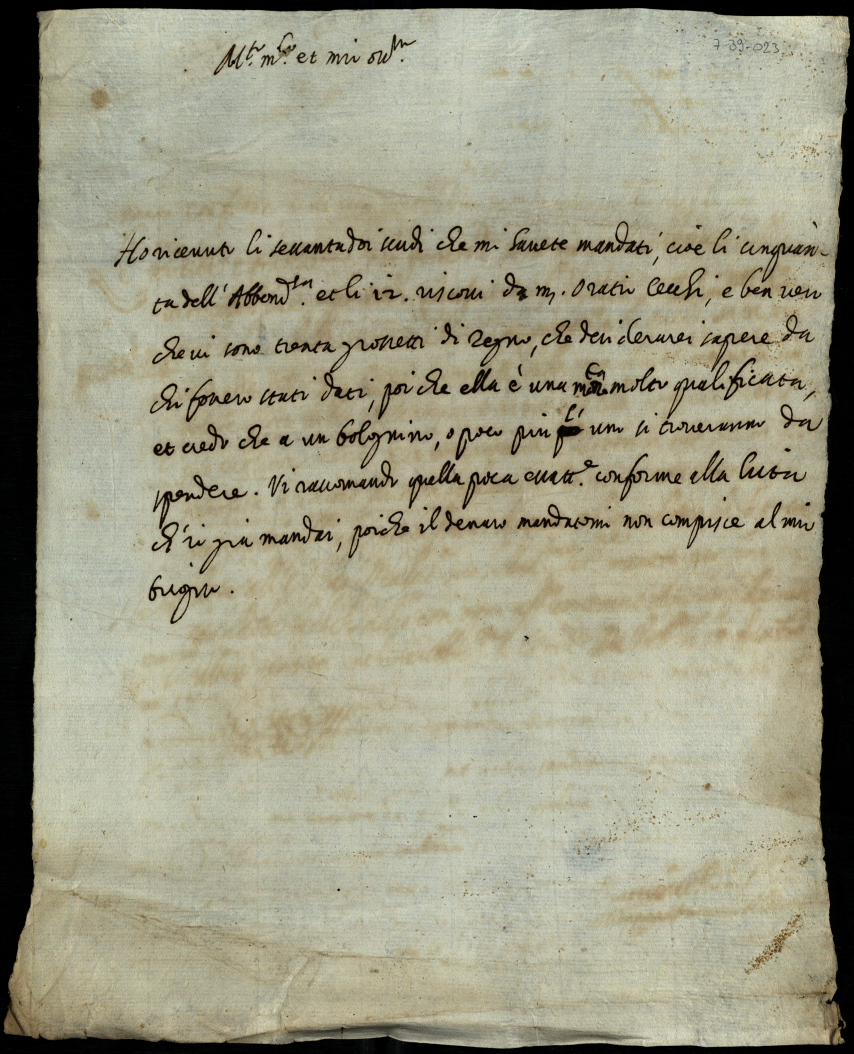 7-39-023
M.to m.co et mio oss.mo
Ho ricevuto li sessantadoi scudi che mi havete mandati, cioè li cinquan-
ta dell' et li 12. riscossi da m. Oratio Cecchi, e ben vero
che vi sono trenta grossetti di Regno, che desiderarei sapere da
chi fossero stati dati, poi che ella è una molto qualificata,
et credo che a un bolognino, o poco più l'uno si troveranno da
spendere. Vi raccomando quella poca conforme alla lista
ch'io già mandai, poiche il denaro mandatomi non compisce al mio
bisogno.